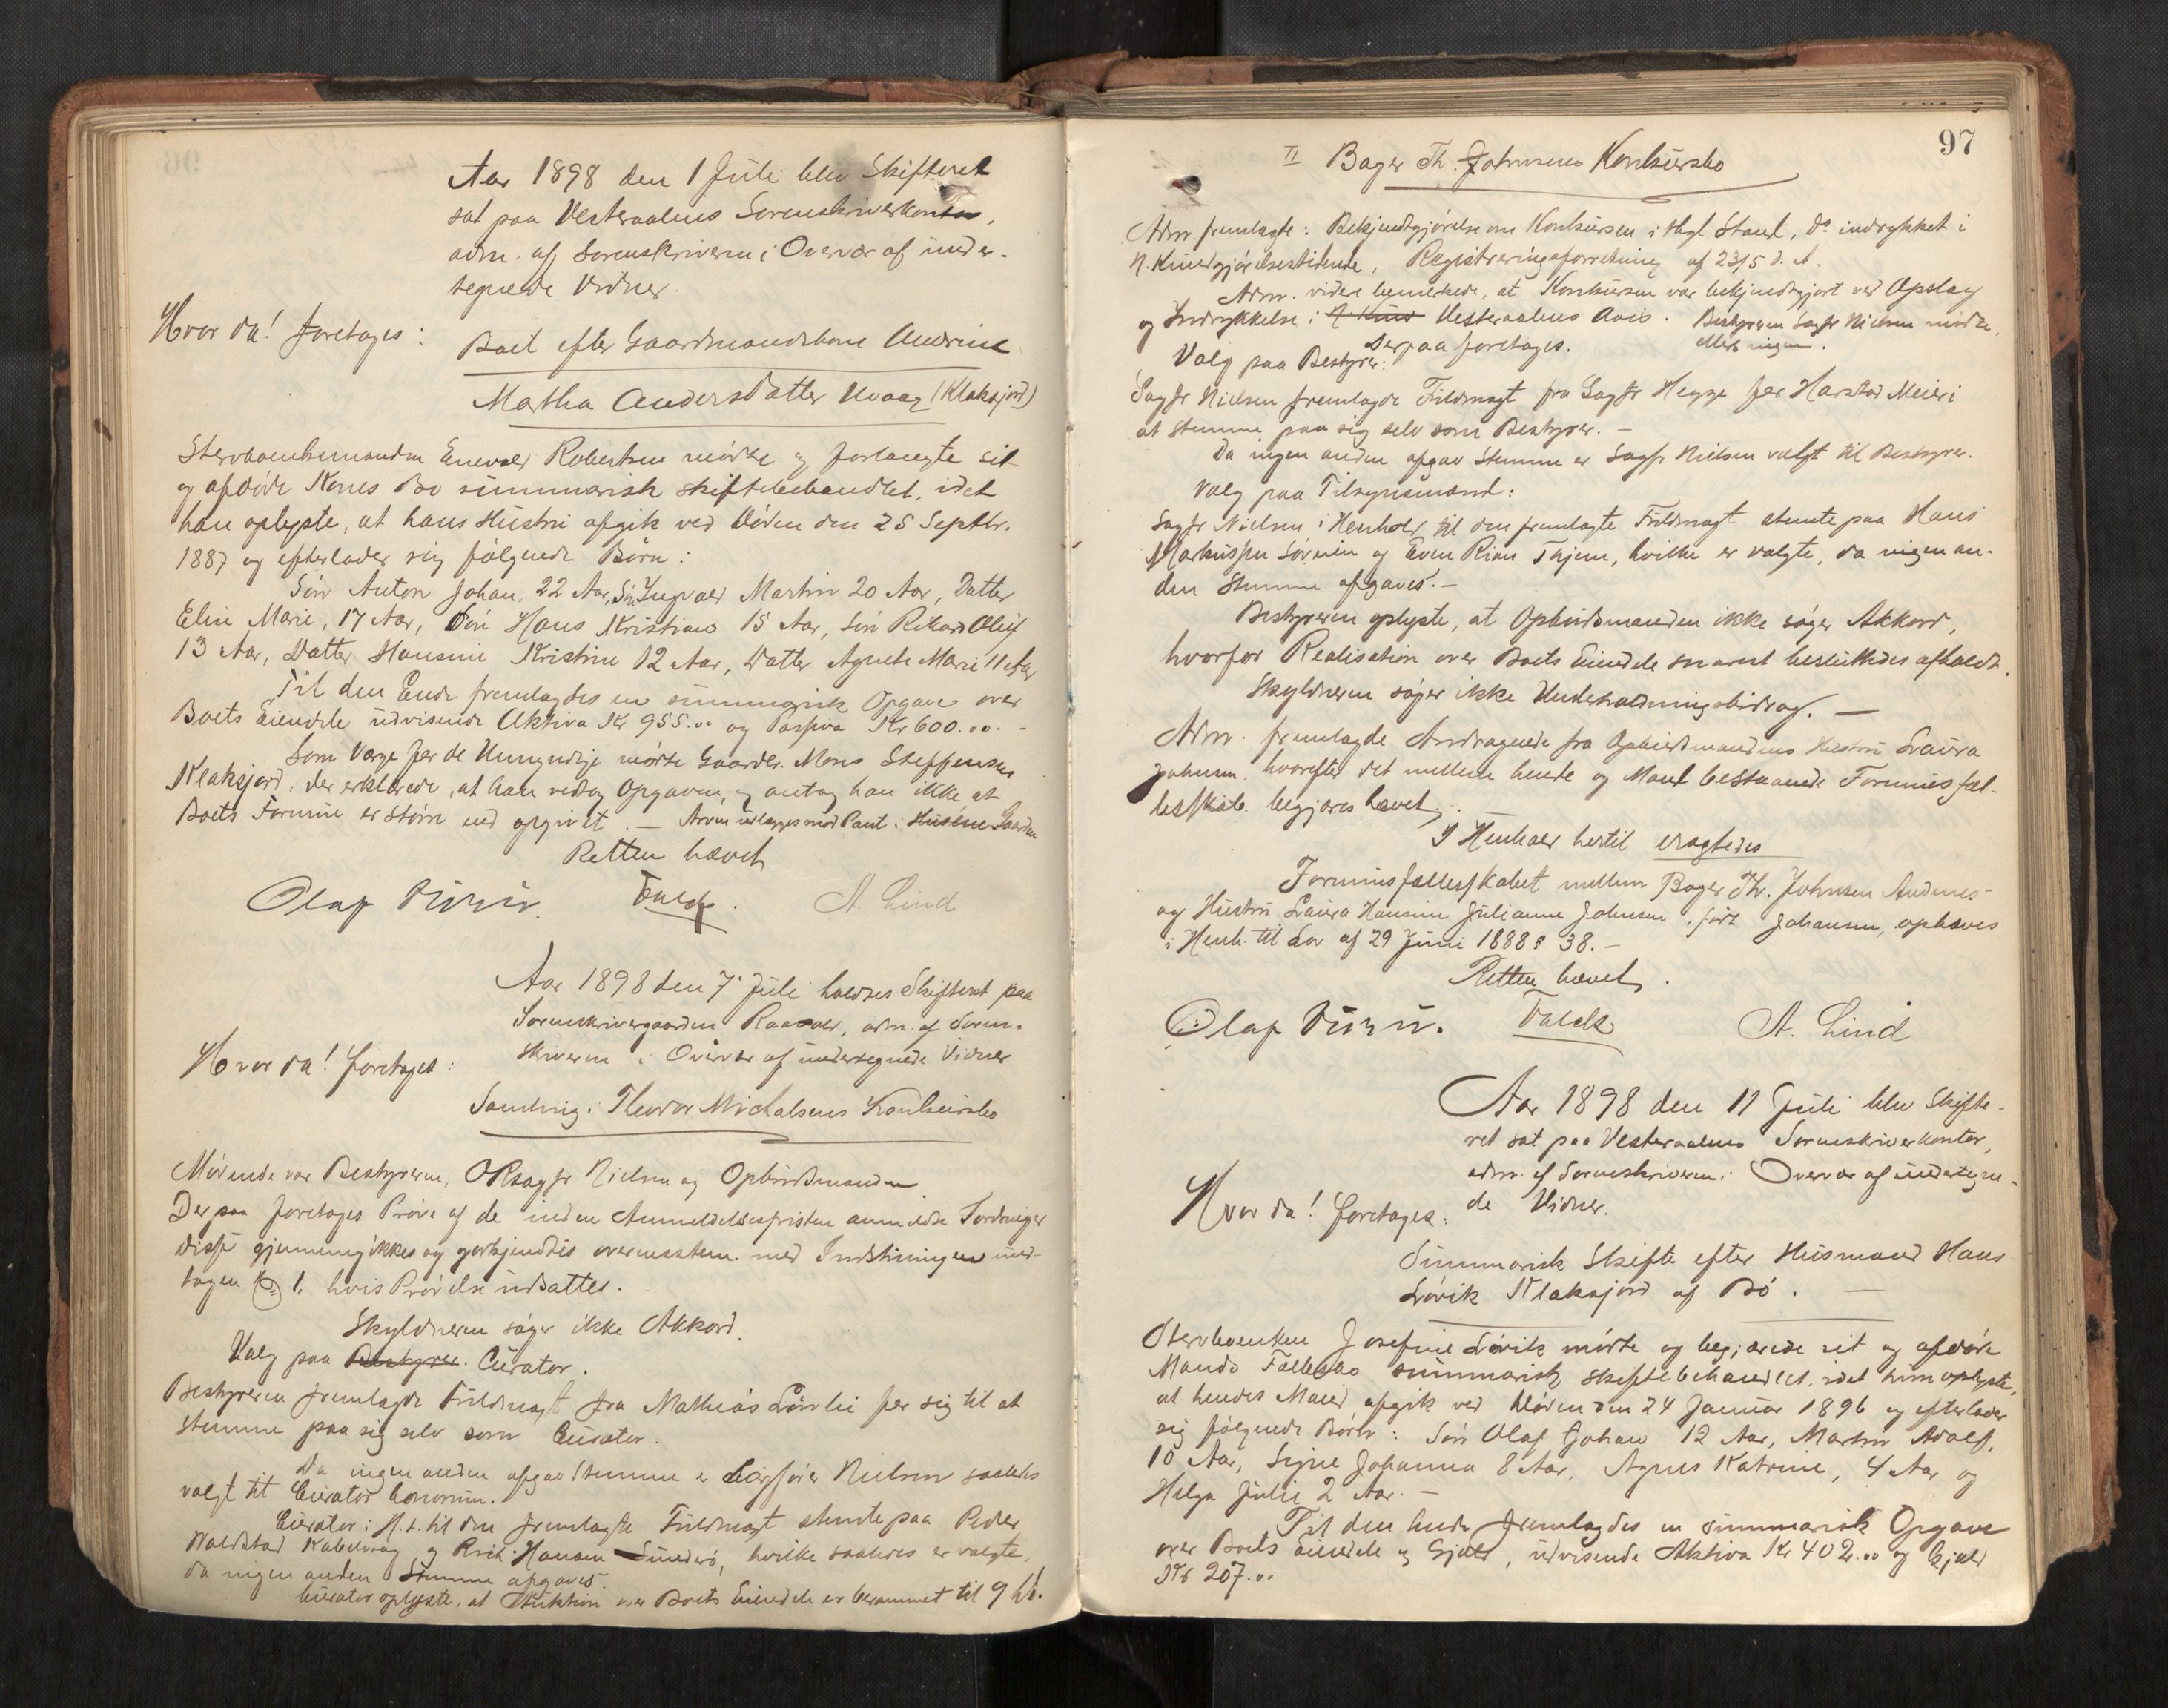 Aar 1898 den 1 Juli blev Skifteret
sat paa Vesteraalens Sorenskriverkontor,
adm. af Sorenskriveren i Overvær af under-
tegnede Vidner.
Hvor da! foretages:
Boet efter Gaardmandskone Andrine
Martha Andersdatter Uvaag (Klaksjord)
Stervboenkemanden Enevold Robertsen mødte og forlangte sit
og afdøde Kones Bo summarisk skiftebehandlet, idet
han oplyste, at hans Hustru afgik ved Døden den 25 Septbr.
1887 og efterlader sig følgende Børn:
Søn Anton Johan, 22 Aar, Søn Ingvald Martin 20 Aar, Datter
Elise Marie, 17 Aar, Søn Hans Kristian 15 Aar, Søn Rikard Oluf
13 Aar, Datter Hansine Kristine 12 Aar, Datter Agnete Marie 11 Aar
Til den Ende fremlagdes en summarisk Opgave over
Boets Eiendele udvisende Aktiva Kr 955.00 og Passiva Kr 600.00. -
Som Værge for de Umyndige mødte Gaardbr. Mons Steffensen
Klaksjord, der erklærede, at han vedtog Opgaven, og antog han ikke, at
Boets Formue er større end opgivet. — Arven udlægges mod Pant i Husene Gaarden
Retten hævet
Olaf Falck. A. Lind
Aar 1898 den 7. Juli holdtes Skifteret paa
Sorenskrivergaarden, adm. af Soren-
skriveren i Overvær af undertegnede Vidner
Hvor da! foretages:
Samling i Theodor Michalsens Konkursbo
Mødende var Bestyreren, ORsagfr Nielsen og Opbudsmanden
Derpaa foretages Prøve af de inden Anmeldelsesfristen anmeldte Fordringer
disse gjennemgikkes og godkjendtes overensstem. med Indstillingen und-
tagen No 1. hvis Prøvelse udsattes.
Skyldneren søger ikke Akkord.
Valg paa Bestyrer. Curator.
Bestyreren fremlagde Fuldmagt fra Mathias for sig til at
stemme paa sig selv som Curator.
Da ingen anden afgav Stemme er Sagfører Nielsen saaledes
valgt til Curator bonorum.
Curator i H. t. til den fremlagte Fuldmagt stemte paa Peder
Kabelvaag og Rich. Hansen, hvilke saaledes er valgte,
da ingen anden Stemme afgaves.
Curator oplyste, at Auktion over Boets Eiendele er berammet til 9 ds.
97
II Bager Th. Johnsens Konkursbo
Adm. fremlagte: Bekjendtgjørelse om Konkursen i thgl Stand, do indrykket i
N. Kundgjørelsestidende, Registreringsforretning af 23/5 d. A.
Adm. videre bemerkede, at Konkursen var bekjendtgjort ved Opslag
og Indrykkelse i N. Kund Vesteraalens Avis. Bestyreren Sagfr Nielsen mødte.
Derpaa foretages. Mere ingen.
Valg paa Bestyrer:
Sagfr Nielsen fremlagde Fuldmagt fra Sagfr Hegge for Harstad Meieri
at stemme paa sig selv som Bestyrer. —
Da ingen anden afgav Stemme er Sagfr Nielsen valgt til Bestyrer.
Valg paa Tilsynsmænd:
Sagfr Nielsen i Henhold til den fremlagte Fuldmagt stemte paa Hans
Markussen og Even, hvilke er valgte, da ingen an-
den Stemme afgaves. -
Bestyreren oplyste, at Opbudsmanden ikke søger Akkord,
hvorfor Realisation over Boets Eiendele snarest besluttedes afholdt.
Skyldneren søger ikke Underholdningsbidrag. —
Adm. fremlagde Andragende fra Opbudsmandens Hustru Laura
Johnsen, hvorefter det mellem hende og Mand bestaaende Formuesfæl-
lesskab begjæres hævet.
I Henhold hertil eragtedes
Formuesfællesskabet mellem Bager Th. Johnsen Andenes
og Hustru Laura Hansine Julianne Johnsen, født Johansen, ophæves
i Henh. til Lov af 29 Juni 1888 § 38. -
Retten hævet.
Olaf Falck A. Lind
Aar 1898 den 11 Juli blev Skifte-
ret sat paa Vesteraalens Sorenskriverkontor,
adm. af Sorenskriveren i Overvær af undertegne-
de Vidner.
Hvor da! foretages:
Summarisk Skifte efter Husmand Hans
Løvik Klaksjord af Bø. —
Stervboenken Josefine Løvik mødte og begjærede sit og afdøde
Mands Fællesbo summarisk skiftebehandlet, idet hun oplyste,
at hendes Mand afgik ved Døden den 24 Januar 1896 og efterlader
sig følgende Børn: Søn Olaf Johan 12 Aar, Martin Adolf,
10 Aar, Signe Johanna 8 Aar, Agnes Katrine, 4 Aar og
Helga Julie 2 Aar. —
Til den Ende fremlagdes en summarisk Opgave
over Boets Eiendele og Gjæld, udvisende Aktiva Kr 402.00 og Gjæld
Kr 207.00